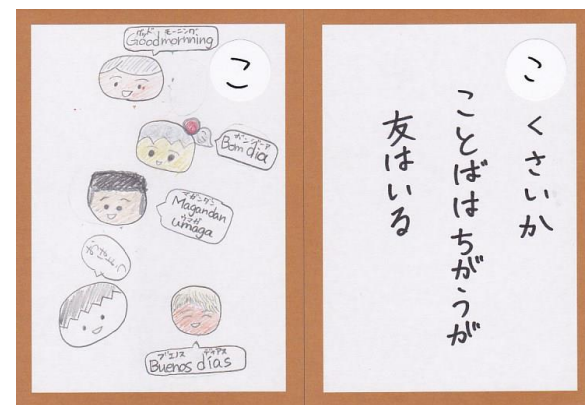 グッド モーニング
Good mornning
こ
ボン ディア
Bom dia
マガンダン
Magandan
ウマガ
umaga
おはよう
ブエノス ディアス
Buenos días
こ
くさいか
ことばはちがうが
友はいる